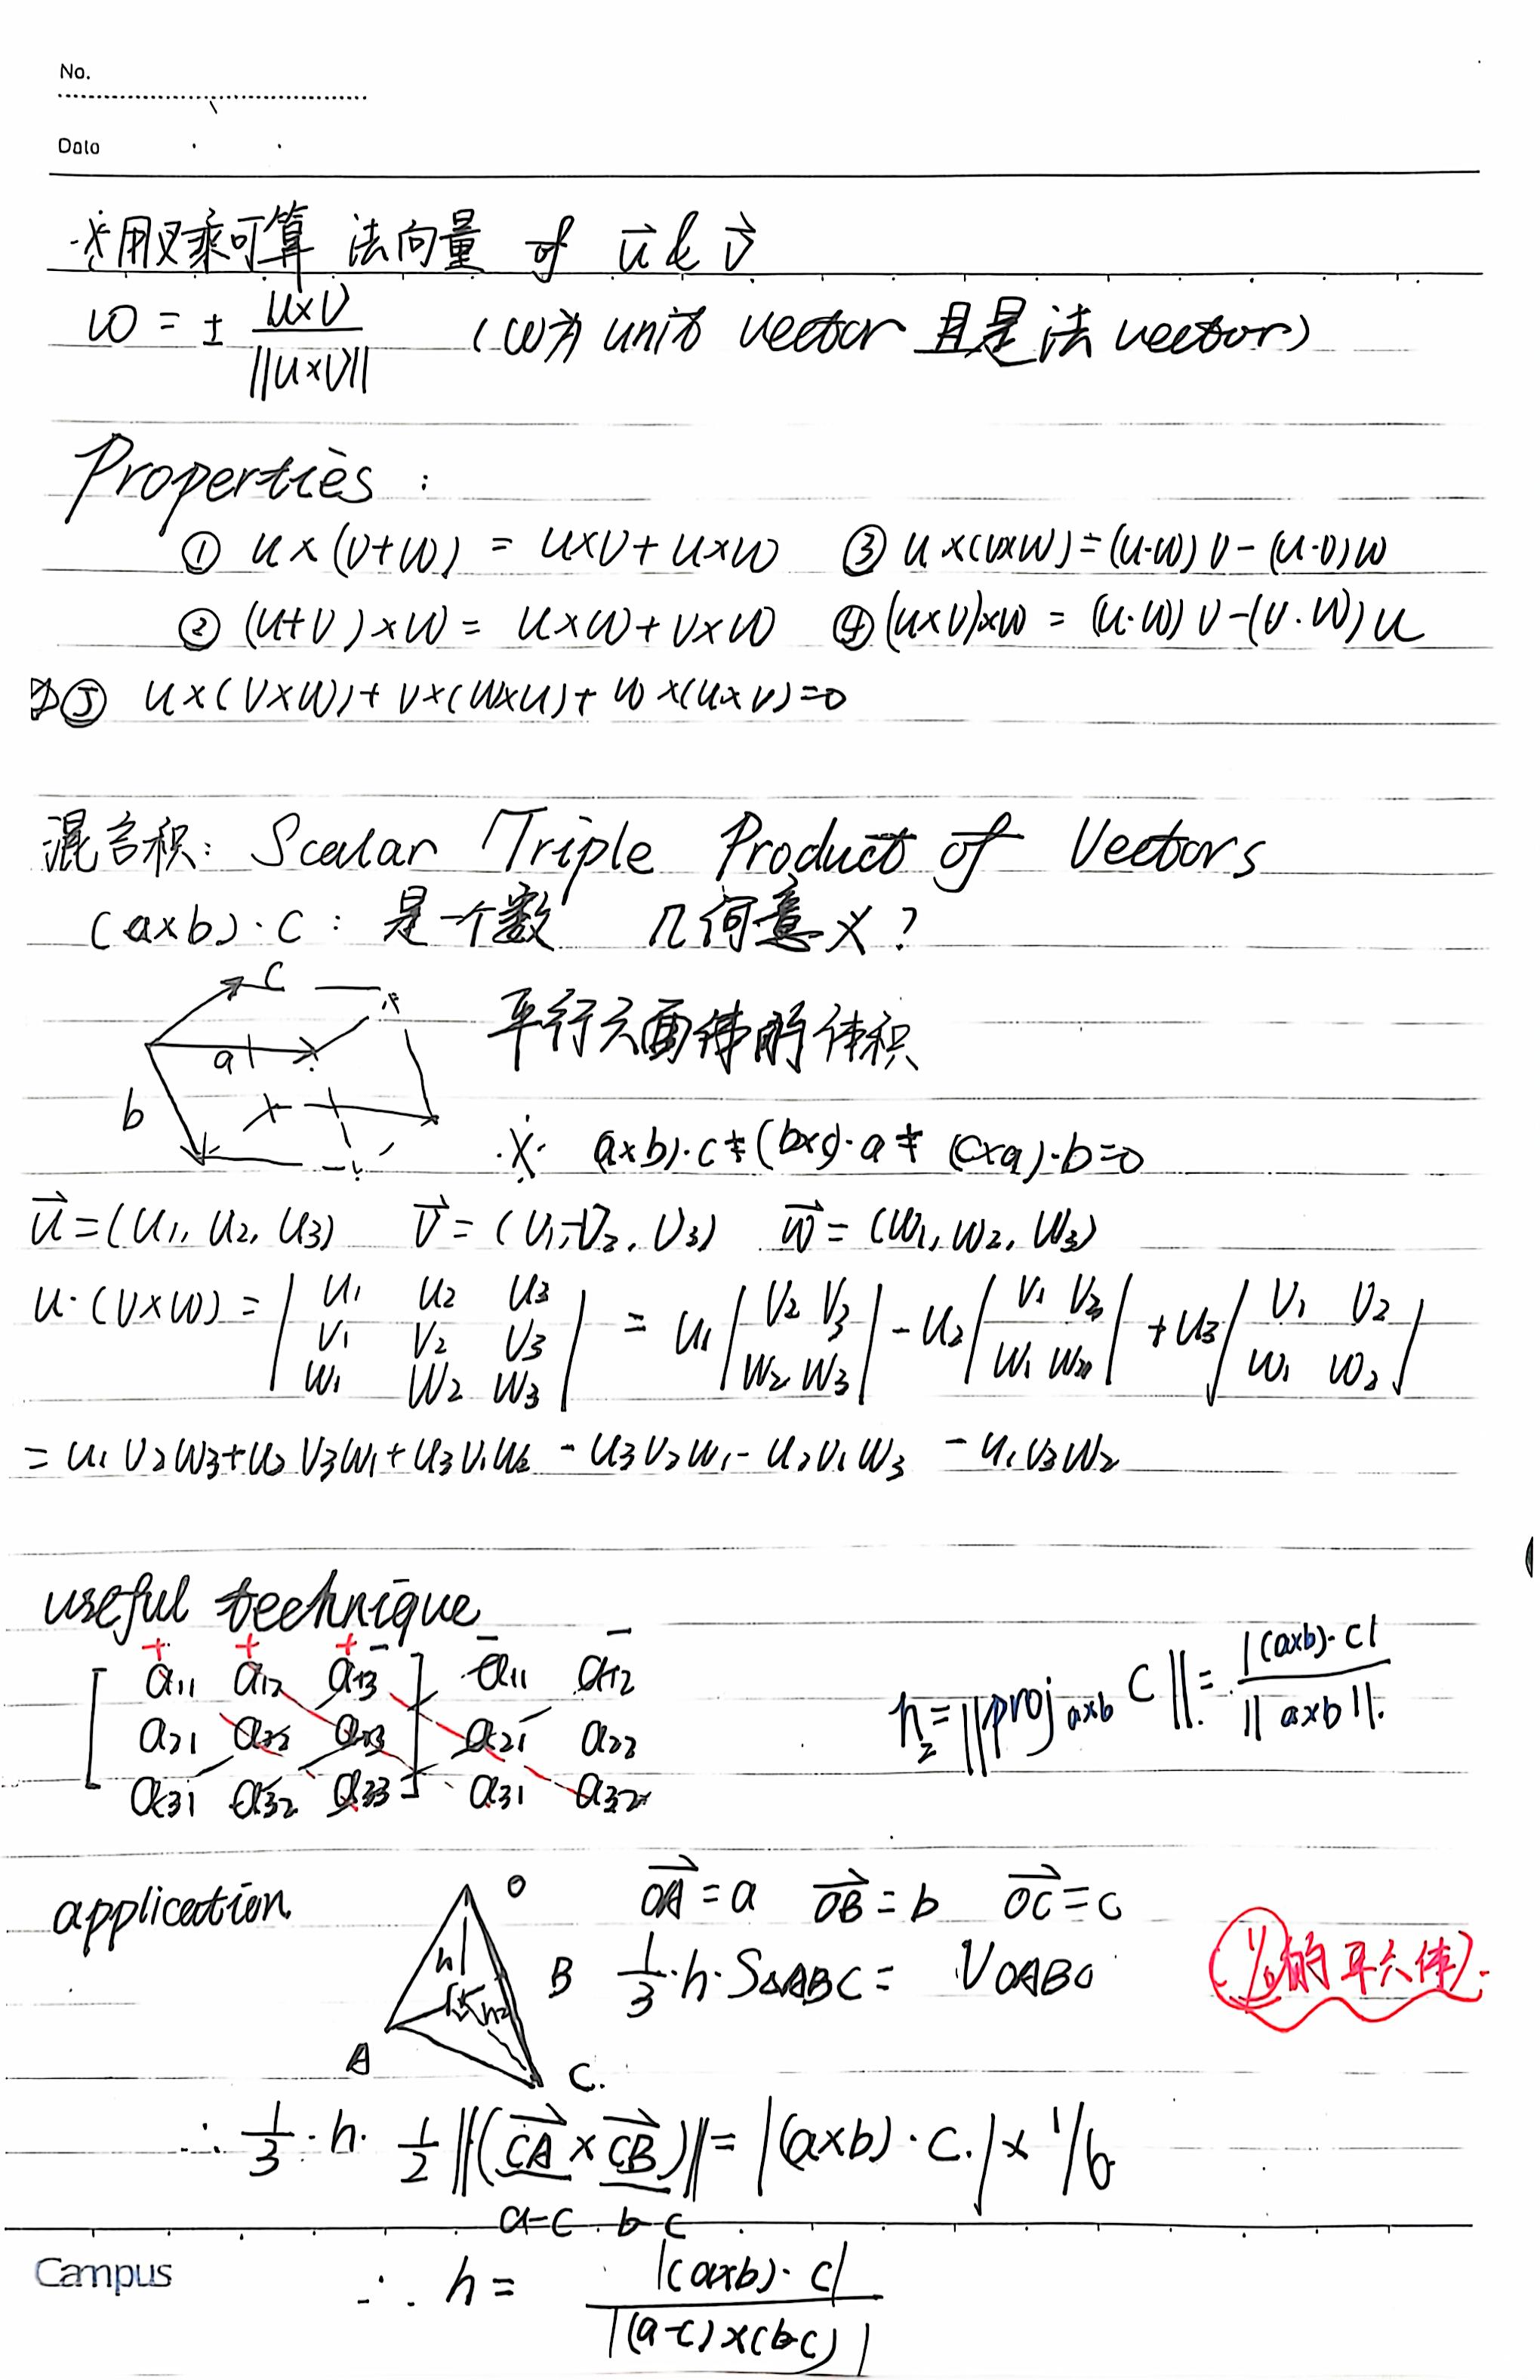 No.
Date
※用叉乘可算 法向量 of u⃗ & v⃗
w = ± u×v / ||u×v|| (w为 unit vector 且是法 vector)
Properties :
① u×(v+w) = u×v + u×w ③ u×(v×w) = (u·w)v − (u·v)w
② (u+v)×w = u×w + v×w ④ (u×v)×w = (u·w)v − (v·w)u
⑤ u×(v×w) + v×(w×u) + w×(u×v) = 0
混合积: Scalar Triple Product of Vectors
(a×b)·c : 是一个数 几何意义?
c
a
b
平行六面体的体积
※ a×b)·c ≠ (b×c)·a ≠ (c×a)·b = 0
u⃗ = (u1, u2, u3) v⃗ = (v1, v2, v3) w⃗ = (w1, w2, w3)
u·(v×w) = | u1 u2 u3 | = u1 | v2 v3 | − u2 | v1 v3 | + u3 | v1 v2 |
| v1 v2 v3 | | w2 w3 | | w1 w3 | | w1 w2 |
| w1 w2 w3 |
= u1v2w3 + u2v3w1 + u3v1w2 − u3v2w1 − u2v1w3 − u1v3w2
useful technique
+ + + − − −
[ a11 a12 a13 ] a11 a12
a21 a22 a23 a21 a22
a31 a32 a33 a31 a32
h2 = ||proj a×b c|| = |(a×b)·c| / ||a×b||.
application
O
h1
h2
A
B
C.
OA⃗ = a OB⃗ = b OC⃗ = c
1/3 · h · S△ABC = VOABC
(1/6的平六体).
∴ 1/3 · h · 1/2 ||(CA⃗ × CB⃗)|| = |(a×b)·c.| × 1/6
a−c b−c
Campus
∴ h = |(a×b)·c| / |(a−c)×(b−c)|